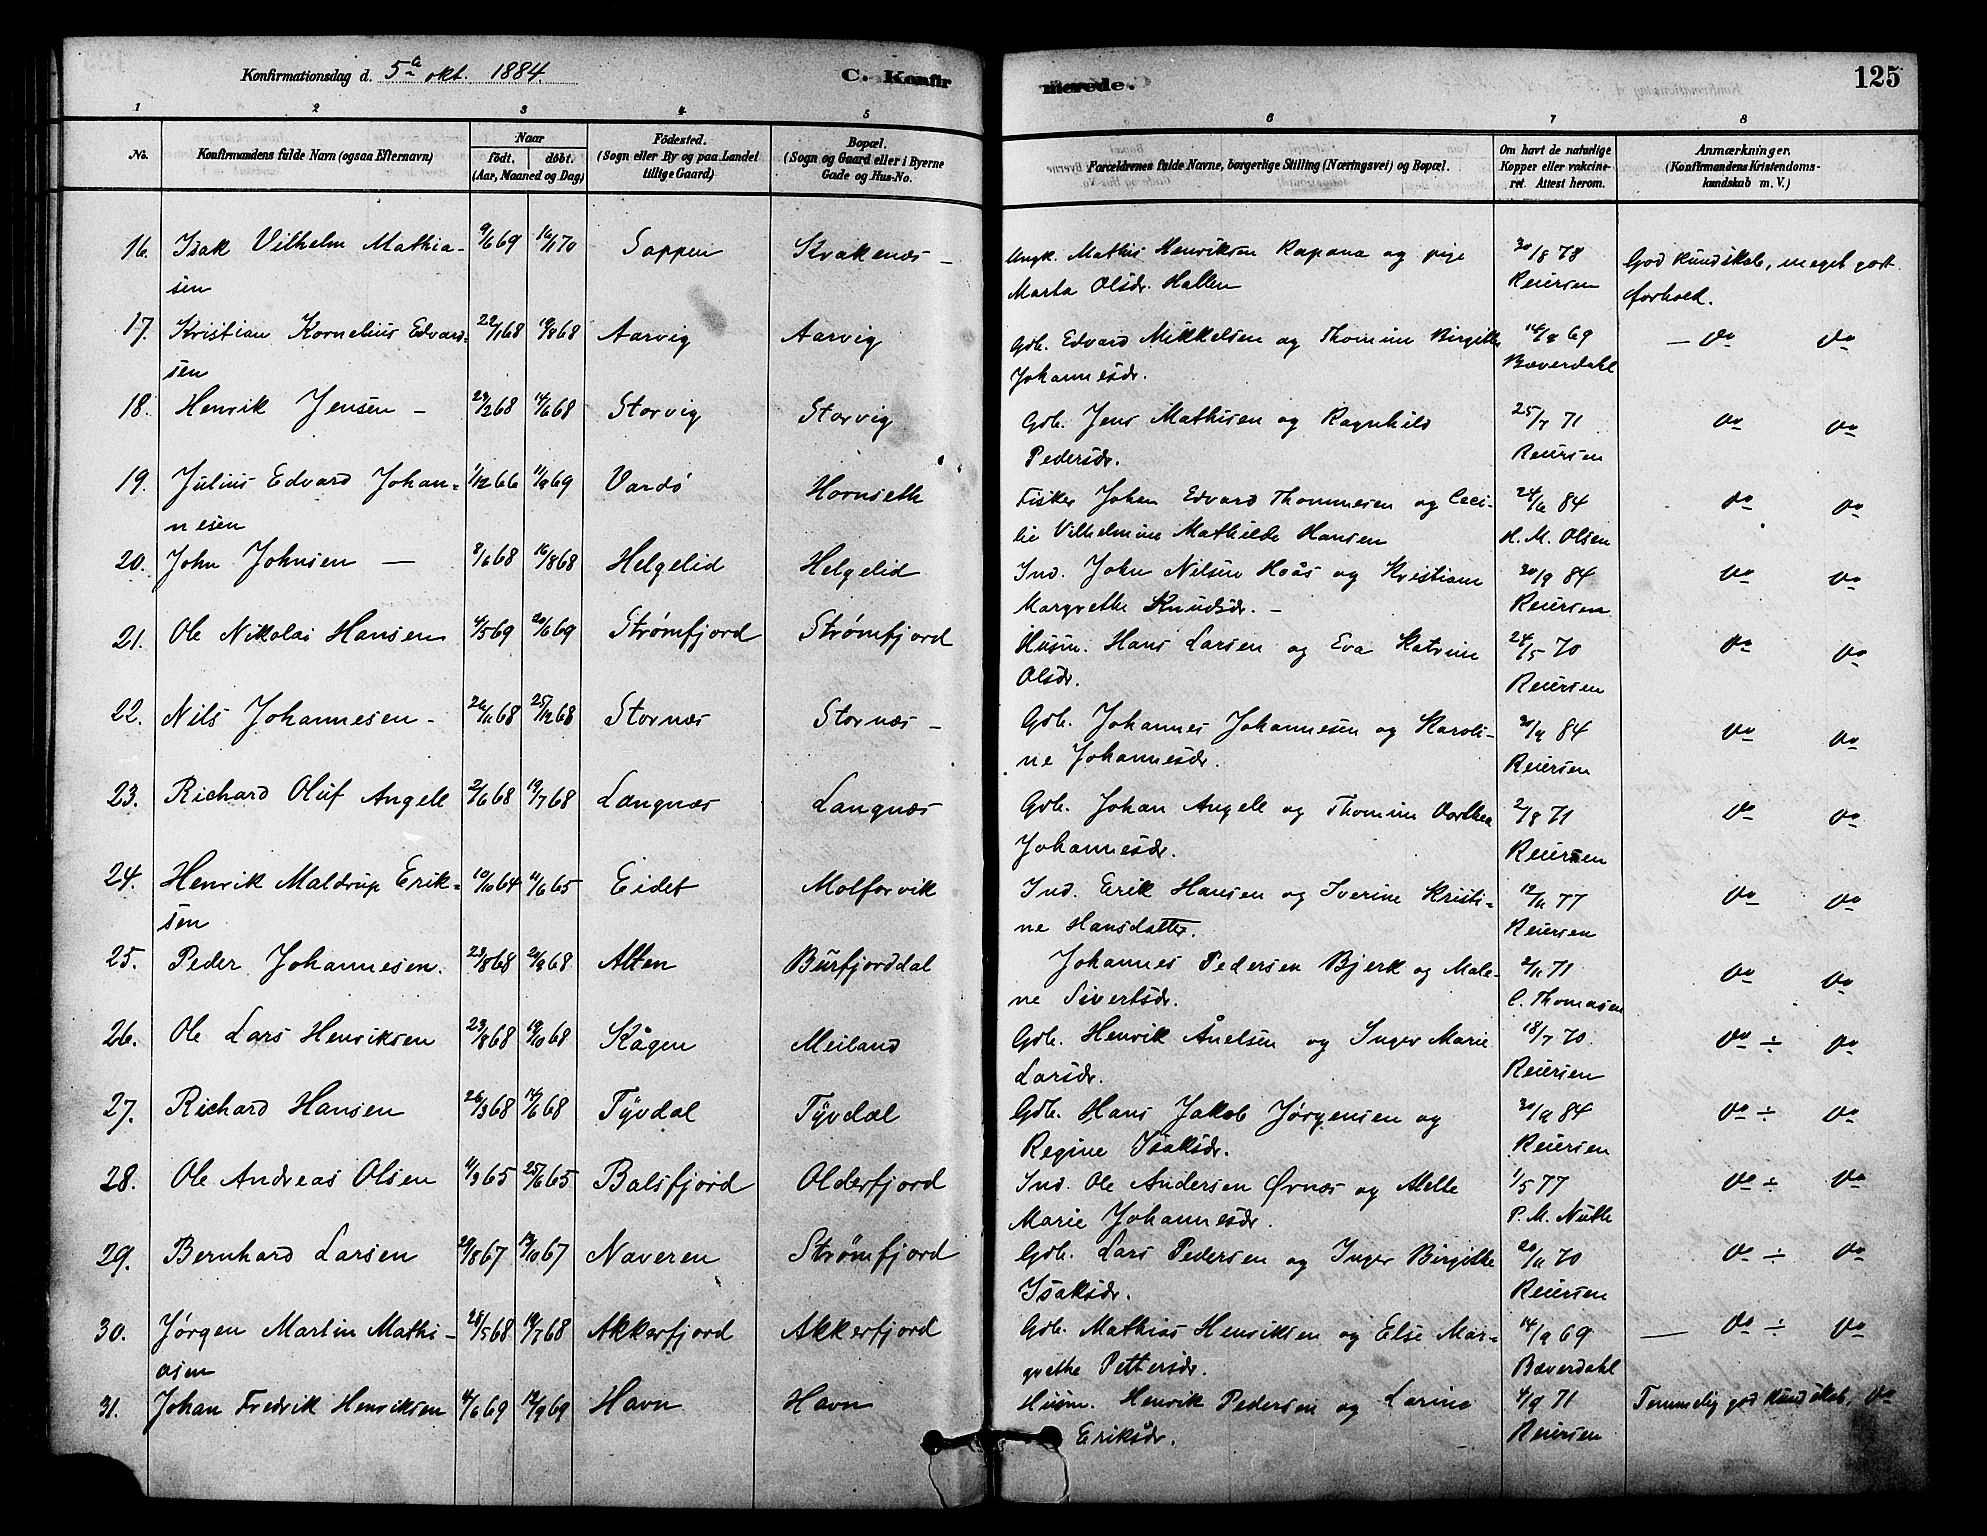 Konfirmationsdag d. 5te okt. 1884.
C. Konfirmerede.
125
1 2 3 4 5 6 7 8
No.
Konfirmandens fulde Navn (ogsaa Efternavn)
Naar
født. døbt.
(Aar, Maaned og Dag)
Fødested.
(Sogn eller By og paa Landet
tillige Gaard)
Bopæl.
(Sogn og Gaard eller i Byerne
Gade og Hus-No.
Forældrenes fulde Navne, borgerlige Stilling (Næringsvei) og Bopæl.
Om havt de naturlige
Kopper eller vakcine-
ret. Attest herom.
Anmærkninger.
(Konfirmandens Kristendoms-
kundskab m. V.)
16. Isak Vilhelm Mathia- 9/6 69 16/1 70 Sappen Kvækenæs - Ungk. Mathis Henriksen Rapana og pige 30/8 78 God Kundskab, meget godt
sen Marta Olsdr. Hallen Reiersen forhold.
17. Kristian Kornelius Edvard- 22/1 68 19/8 68 Aarvig Aarvig Gdb. Edvard Mikkelsen og Thomine Birgitte 14/9 69 - do do
sen Johannesdr. Bæverdahl
18. Henrik Jensen - 29/2 68 14/6 68 Storvig Storvig Gdb. Jens Mathisen og Ragnhild 25/7 71 do do
Pedersdr. Reiersen
19. Julius Edvard Johan- 1/12 66 11/9 69 Vardö Hornseth Fisker Johan Edvard Thommesen og Ceci- 24/6 84 do do
nesen lie Vilhelmine Mathilde Hansen H. M. Olsen
20. John Johnsen - 8/6 68 16/8 68 Helgelid Helgelid Ind. John Nilsen Hoås og Kristiane 30/9 84 do do
Margrethe Knudsdr. - Reiersen
21. Ole Nikolai Hansen 4/5 69 20/6 69 Strømfjord Strømfjord Husm. Hans Larsen og Eva Katrine 24/5 70 do do
Olsdr. Reiersen
22. Nils Johannesen - 26/11 68 25/12 68 Stornæs Stornæs - Gdb. Johannes Johannesen og Karoli- 30/9 84 do do
ne Johannesdr. Reiersen
23. Richard Oluf Angell 2/6 68 19/7 68 Langnæs Langnæs Gdb. Johan Angell og Thomine Dorthea 2/8 71 do do
Johannesdr. Reiersen
24. Henrik Maldrup Erik- 10/10 64 11/6 65 Eidet Molforvik Ind. Erik Hansen og Iverine Kristi- 12/11 77 do do
sen ne Hansdatter. Reiersen
25. Peder Johannesen. 23/8 68 20/9 68 Alten Burfjorddal Johannes Pedersen Bjerk og Male- 2/11 71 do do
ne Sivertsdr. C. Thomasen
26. Ole Lars Henriksen 23/8 68 19/10 68 Kågen Meiland Gdb. HenrikÅnelsen og Inger Marie 18/7 70. do ÷ do
Larsdr. Reiersen
27. Richard Hansen 26/3 68 14/6 68 Tÿvdal Tÿvdal Gdb. Hans Jakob Jørgensen og 30/9 84 do ÷ do
Regine Isaksdr. Reiersen
28. Ole Andreas Olsen 11/3 65 25/6 65 Balsfjord Olderfjord Ind. Ole Andersen Ørnæs og Mette 1/5 77 do ÷ do
Marie Johannesdr. P. M. Nuth
29. Bernhard Larsen 29/8 67 13/10 67 Naveren Strømfjord Gdb. Lars Pedersen og Inger Birgitte 20/11 70 do ÷ do
Isaksdr. Reiersen
30. Jørgen Martin Mathi- 28/5 68 19/7 68 Akkerfjord Akkerfjord Gdb. Mathias Henriksen og Else Mar- 14/9 69 - do ÷ do
asen grethe Pettersdr. Bæverdahl
31. Johan Fredrik Henriksen 4/6 69 19/9 69 Havn Havn Husm. Henrik Pedersen og Larine 4/9 71 Temmelig god Kundskab, do
Eriksdr. Reiersen